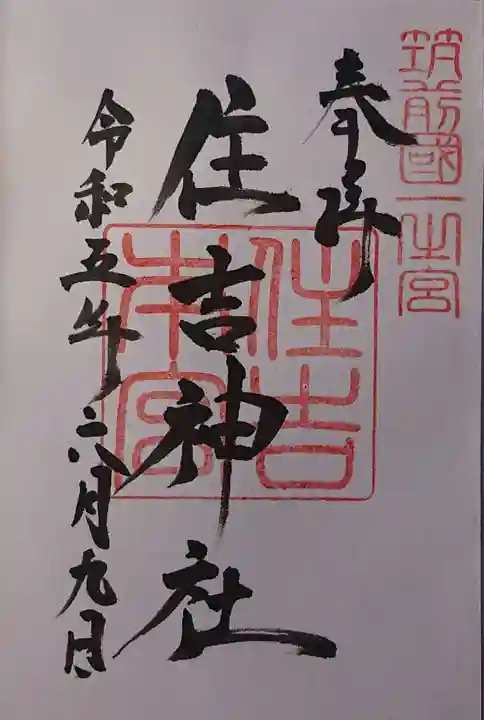 筑前國一之宮
奉拝
住吉神社
住吉本宮
令和五年六月九日